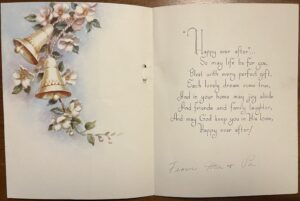 "Happy ever after"...
So may life be for you,
Blest with every perfect gift,
Each lovely dream come true,
And in your home may joy abide
And friends and family laughter,
And may God keep you in His love,
Happy ever after!
From